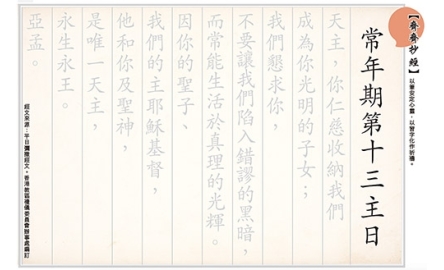 【齊齊抄經】
以筆安定心靈，以習字化作祈禱。
常年期第十三主日
天主，你仁慈收納我們
成為你光明的子女；
我們懇求你，
不要讓我們陷入錯謬的黑暗，
而常能生活於真理的光輝。
因你的聖子、
我們的主耶穌基督，
他和你及聖神，
是唯一天主，
永生永王。
亞孟。
經文來源：平日彌撒經文。香港教區禮儀委員會辦事處編訂